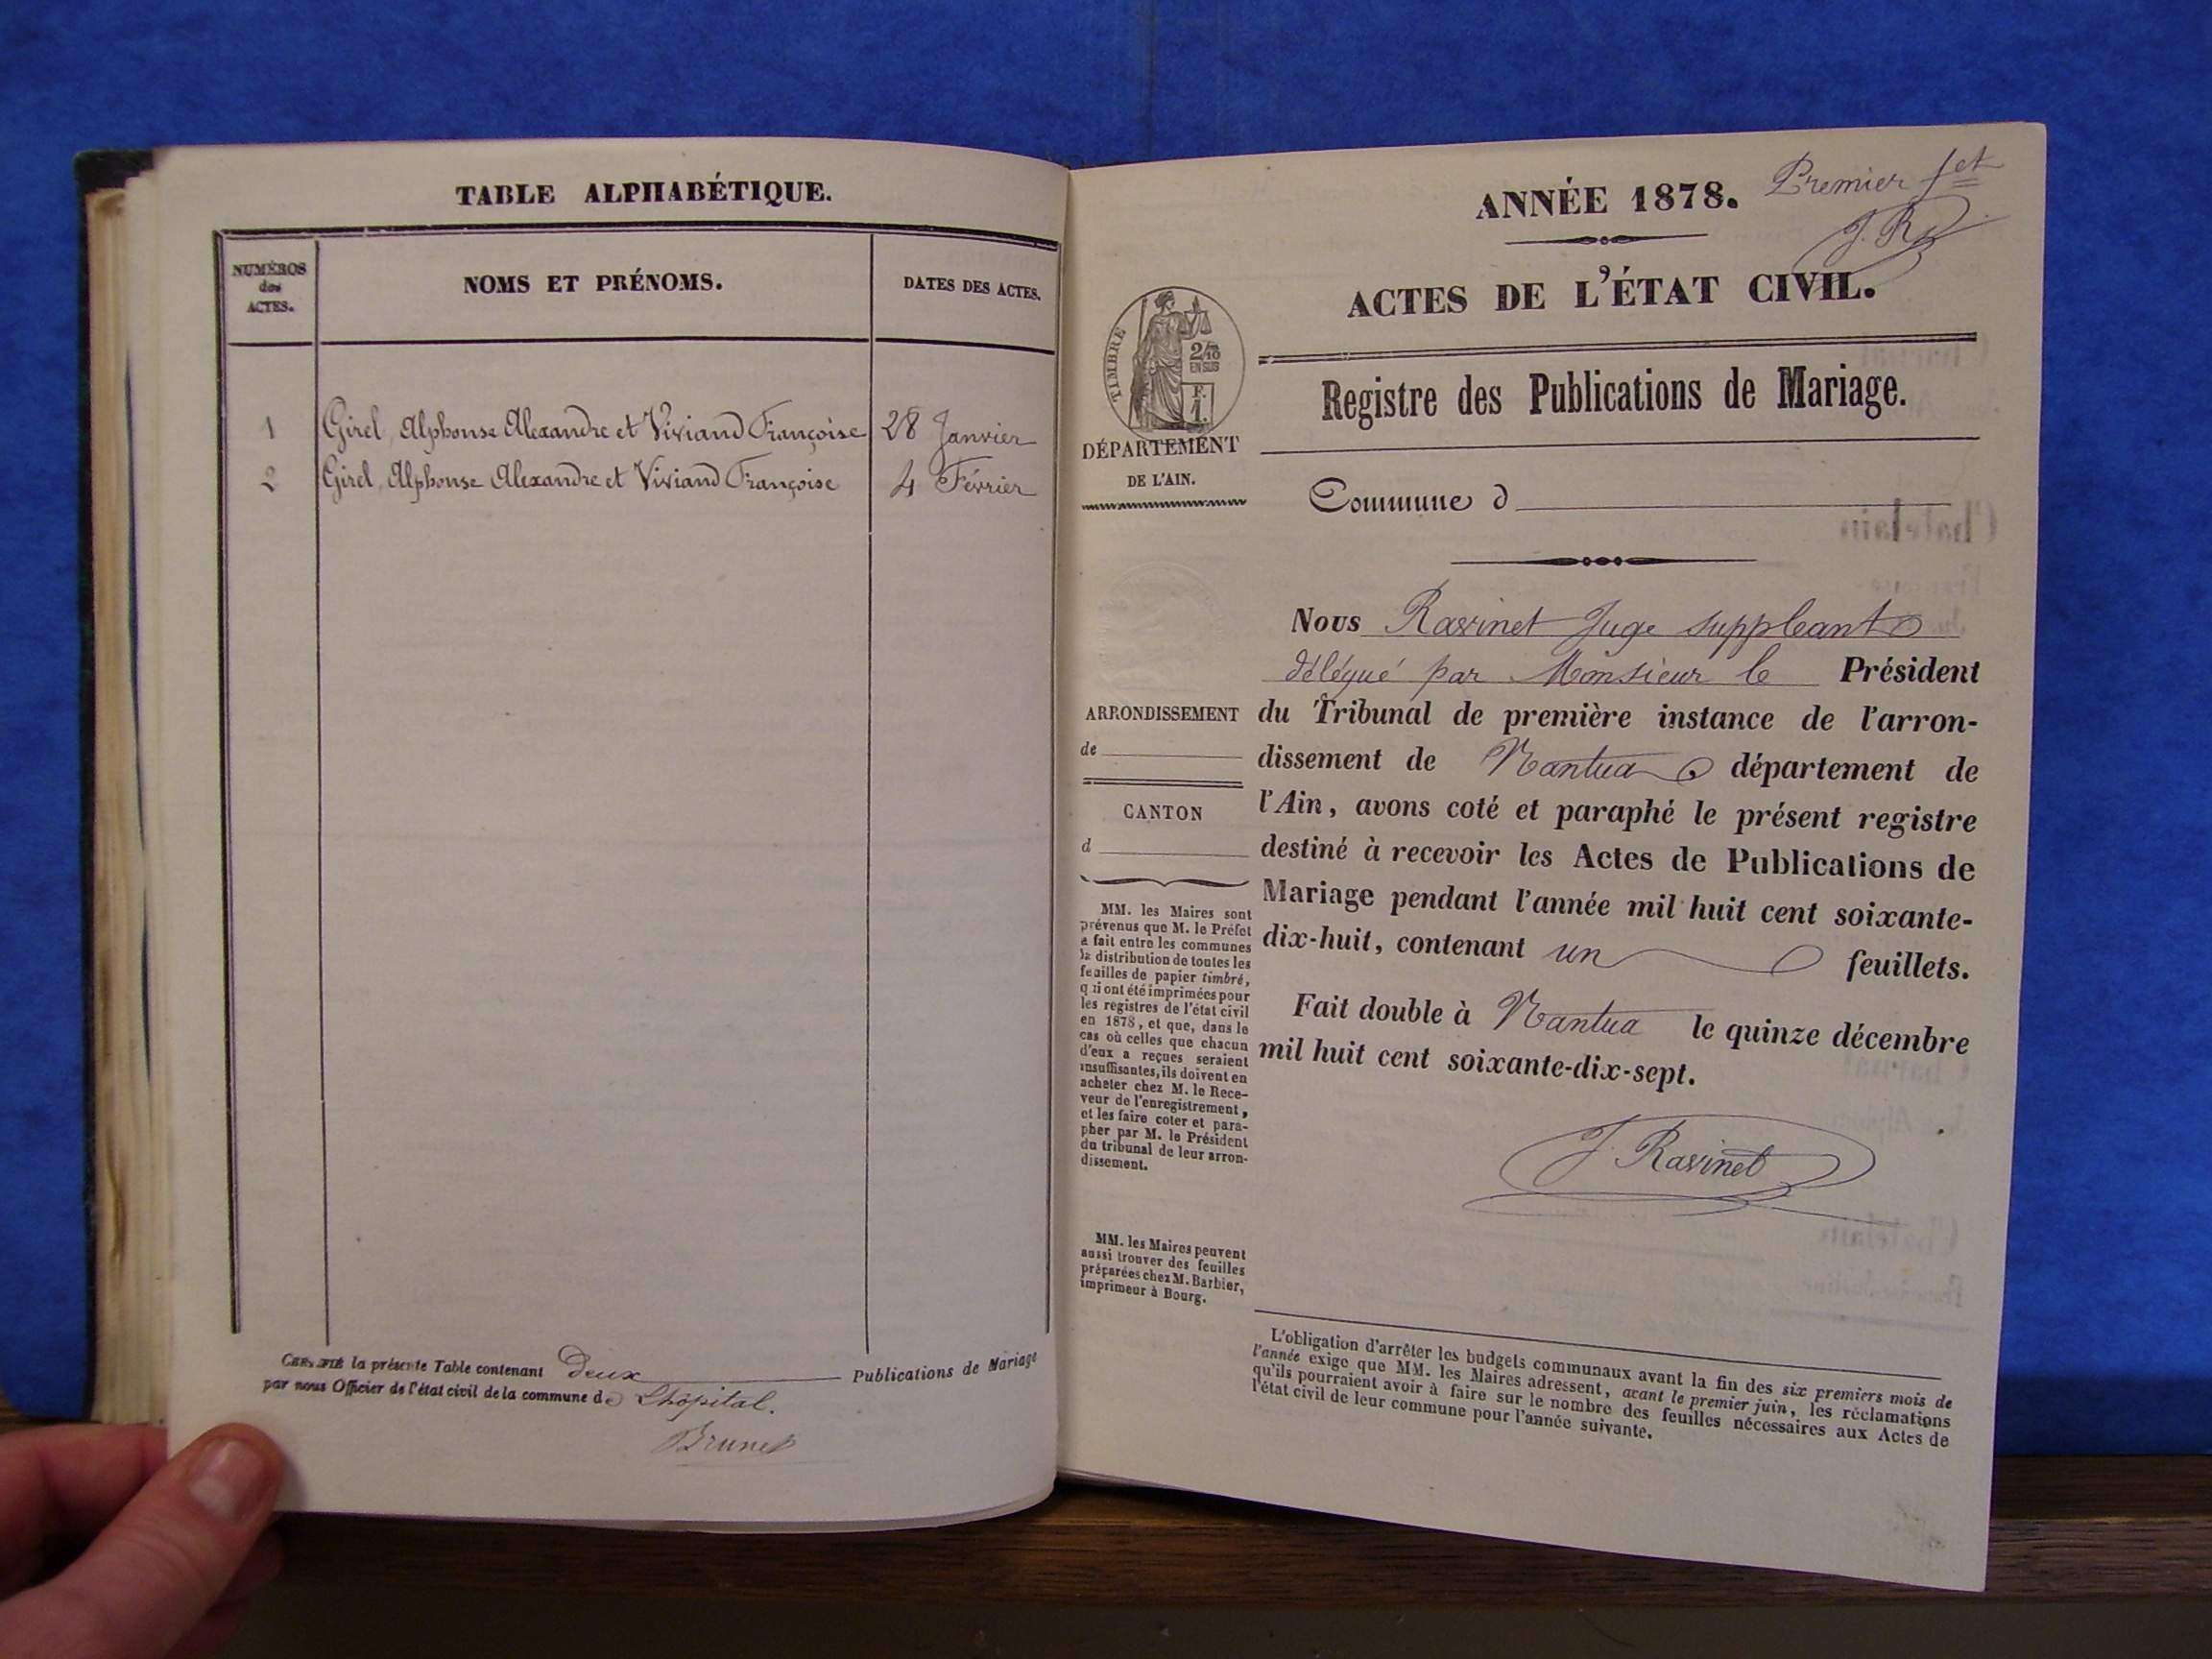 TABLE ALPHABÉTIQUE.
NUMÉROS
des
ACTES.
NOMS ET PRÉNOMS.
DATES DES ACTES.
1 Girel, Alphonse Alexandre et Viviand Françoise 28 Janvier
2 Girel, Alphonse Alexandre et Viviand Françoise 4 Février
CERTIFIÉ la présente Table contenant deux Publications de Mariage
par nous Officier de l'état civil de la commune de Lhôpital.
Brunet
Premier fet
ANNÉE 1878.
ACTES DE L'ÉTAT CIVIL.
TIMBRE
2/10
EN SUS
F.
1.
DÉPARTEMENT
DE L'AIN.
Registre des Publications de Mariage.
Commune d
Nous Ravinet Juge suppleant
délégué par Monsieur le Président
du Tribunal de première instance de l'arron-
dissement de Nantua département de
l'Ain, avons coté et paraphé le présent registre
destiné à recevoir les Actes de Publications de
Mariage pendant l'année mil huit cent soixante-
dix-huit, contenant un feuillets.
Fait double à Nantua le quinze décembre
mil huit cent soixante-dix-sept.
J. Ravinet
ARRONDISSEMENT
de
CANTON
d
MM. les Maires sont
prévenus que M. le Préfet
a fait entre les communes
la distribution de toutes les
feuilles de papier timbré,
qui ont été imprimées pour
les registres de l'état civil
en 1878, et que, dans le
cas où celles que chacun
d'eux a reçues seraient
insuffisantes, ils doivent en
acheter chez M. le Rece-
veur de l'enregistrement,
et les faire coter et para-
pher par M. le Président
du tribunal de leur arron-
dissement.
MM. les Maires peuvent
aussi trouver des feuilles
préparées chez M. Barbier,
imprimeur à Bourg.
L'obligation d'arrêter les budgets communaux avant la fin des six premiers mois de
l'année exige que MM. les Maires adressent, avant le premier juin, les réclamations
qu'ils pourraient avoir à faire sur le nombre des feuilles nécessaires aux Actes de
l'état civil de leur commune pour l'année suivante.